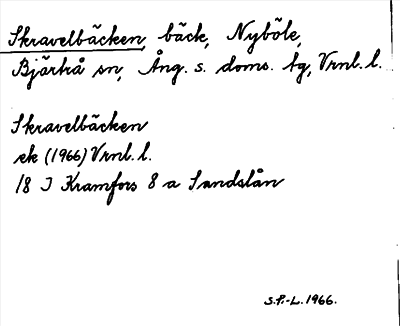 Skravelbäcken, bäck, Nyböle,
Bjärtrå sn, Ång. s. doms. tg, Vrnl. l.
Skravelbäcken
ek (1966) Vrnl. l.
18 I Kramfors 8 a Sandslån
S.P.-L. 1966.